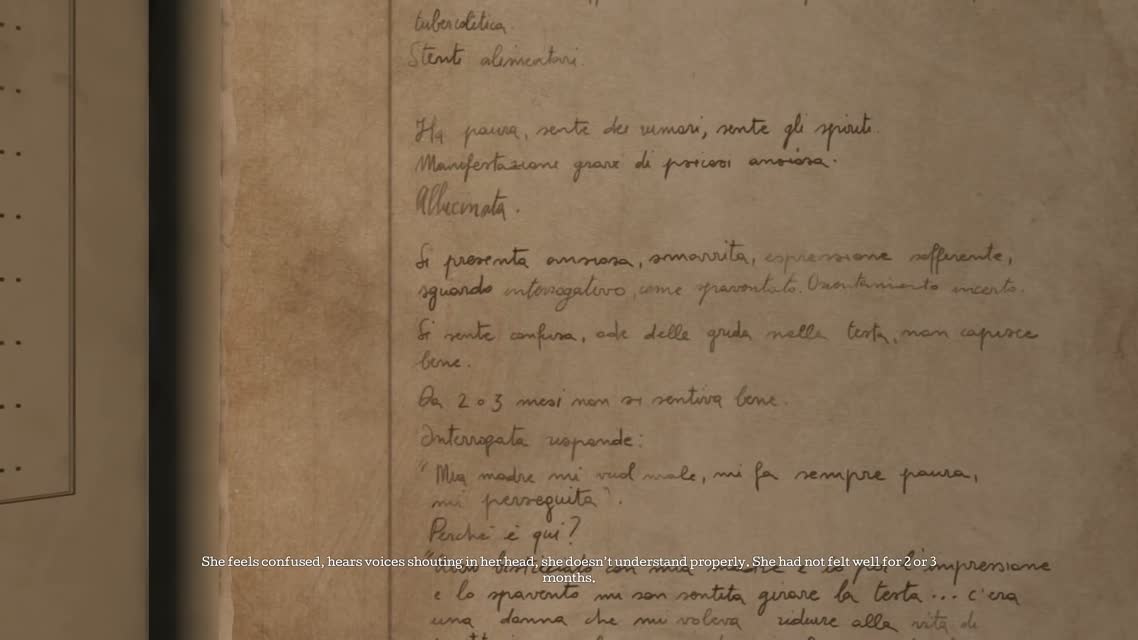 tubercolotica.
Stenti alimentari.
Ha paura, sente dei rumori, sente gli spiriti.
Manifestazione grave di psicosi ansiosa.
Allucinata.
Si presenta ansiosa, smarrita, espressione sofferente,
sguardo interrogativo, come spaventato. Orientamento incerto.
Si sente confusa, ode delle grida nella testa, non capisce
bene.
Da 2 o 3 mesi non si sentiva bene.
Interrogata risponde:
"Mia madre mi vuol male, mi fa sempre paura,
mi perseguita".
Perché è qui?
She feels confused, hears voices shouting in her head, she doesn't understand properly. She had not felt well for 2 or 3
months.
con mia madre e io per l'impressione
e lo spavento mi son sentita girare la testa... c'era
una donna che mi voleva ridurre alla vita di